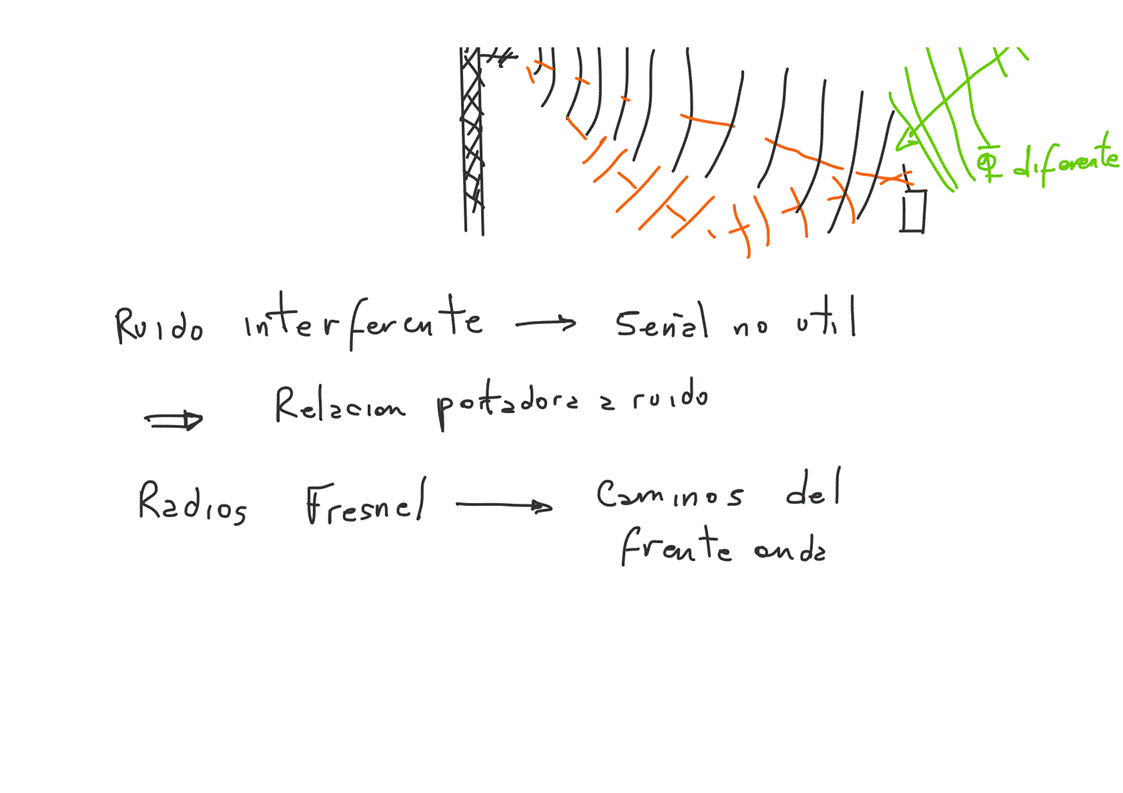 Φ diferente
Ruido interferente → Señal no util
⇒ Relacion portadora a ruido
Radios Fresnel → Caminos del
frente onda